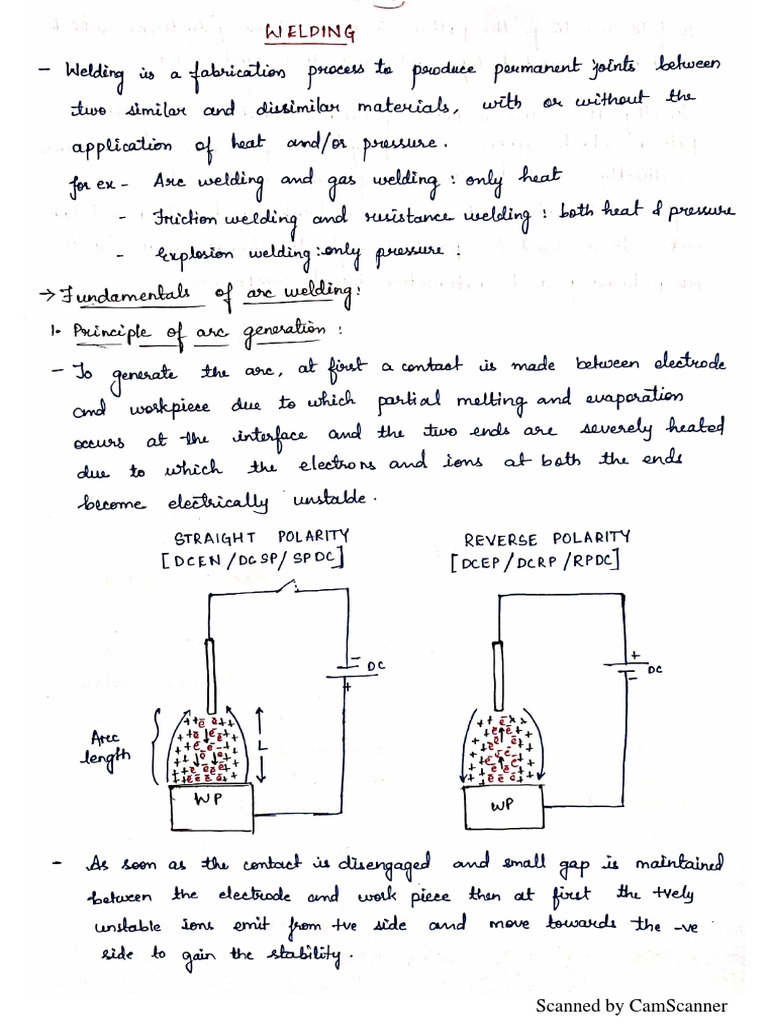 WELDING
- Welding is a fabrication process to produce permanent joints between
two similar and dissimilar materials, with or without the
application of heat and/or pressure.
for ex - Arc welding and gas welding : only heat
- Friction welding and resistance welding : both heat & pressure
- Explosion welding : only pressure :
→ Fundamentals of arc welding :
1. Principle of arc generation :
- To generate the arc, at first a contact is made between electrode
and workpiece due to which partial melting and evaporation
occurs at the interface and the two ends are severely heated
due to which the electrons and ions at both the ends
become electrically unstable.
STRAIGHT POLARITY
[DCEN/DCSP/SPDC]
REVERSE POLARITY
[DCEP/DCRP/RPDC]
DC
+
+
DC
Arc
length
L
WP
WP
- As soon as the contact is disengaged and small gap is maintained
between the electrode and work piece then at first the +vely
unstable ions emit from +ve side and move towards the -ve
side to gain the stability.
Scanned by CamScanner